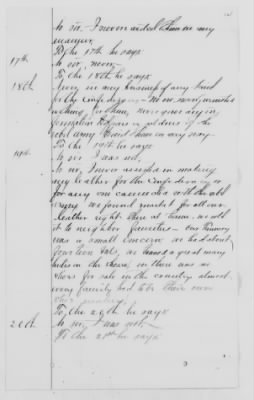 No sir. I never aided them in any
manner.
To the 17th he says
17th No sir, never.
To the 18th he says
18th Never in any of any kind
for the Confederacy
nothing for them, never gave any in-
formation to or soldiers of the
rebel army aided them in any way.
To the 19th he says
No sir I was not.
19th No, I never assisted in making
any leather for the Confederacy or
for any one connected with the rebel
army we found market for all our
leather right there at home. we sold
it to neighbor families - our Tannery
was a small concern we had about
fourteen vats, we tanned a great many
hides on the shares, as there was no
shoes for sale in the country almost
every family had to be their own
shoe
To the 20th he says
20th No sir, I was not.
To the 21st he says